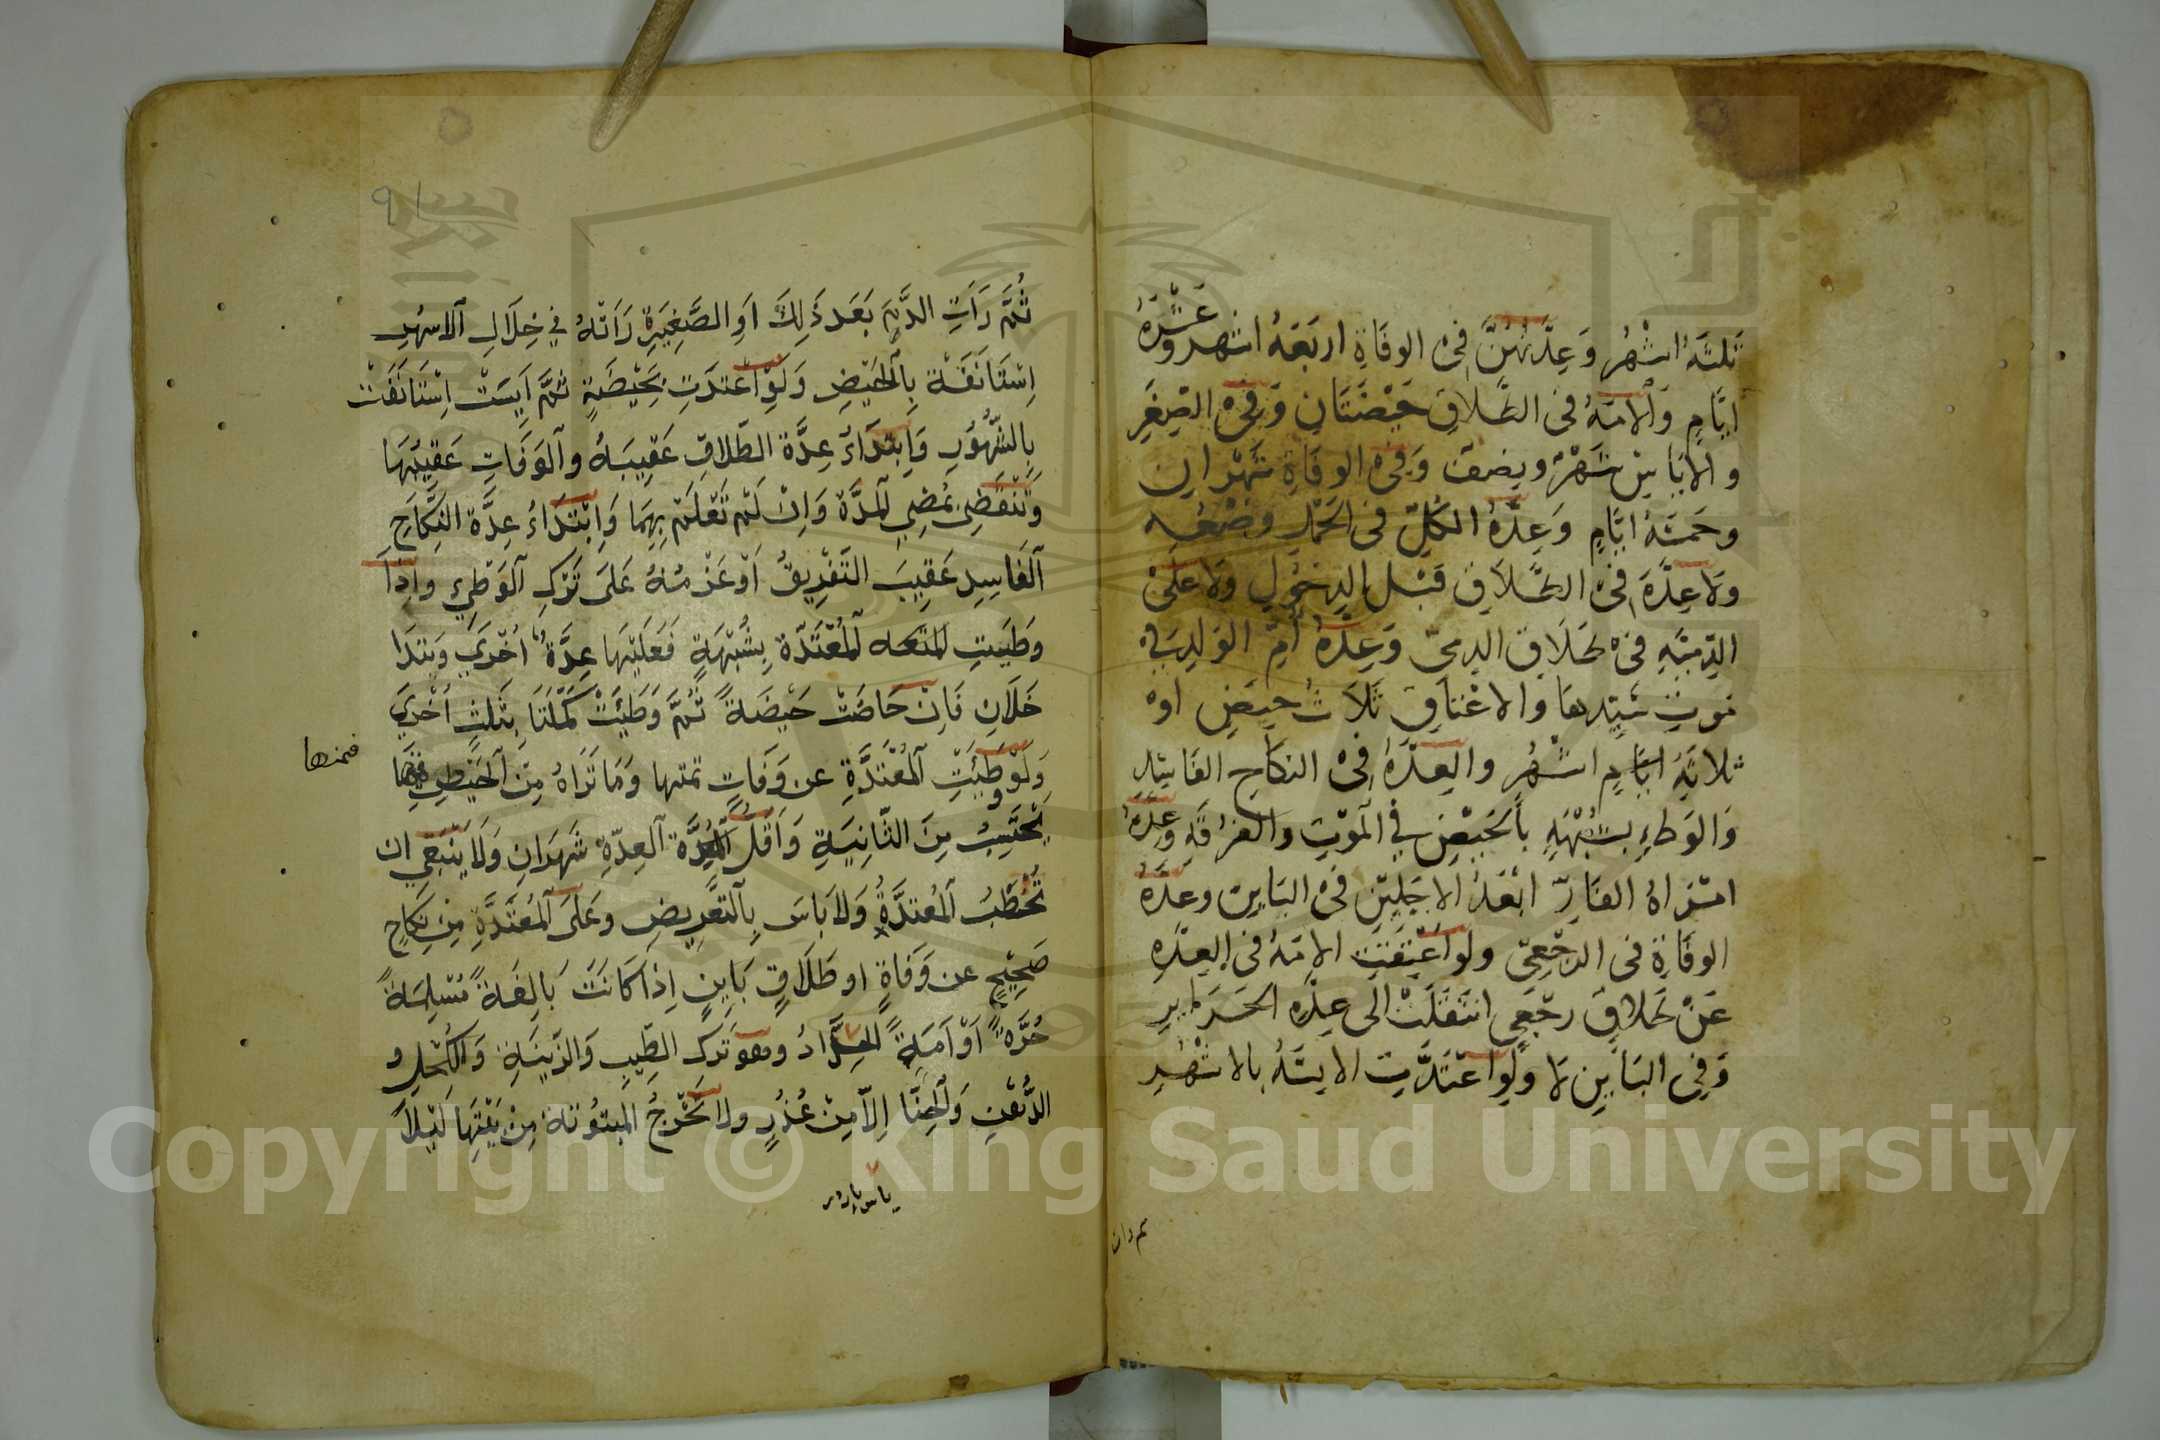 ثَلثَةُ اشْهُرٍ وَعِدَّتُهُنَّ فِى الوفَاةِ اربَعَةُ اشهر وَعَشْرَةُ
ايَّامٍ وَالامَةُ فى الطَّلاقِ حَيْضَتَانِ وَفِى الصِّغَرِ
والايَاسِ شَهْرٌ ونِصفٌ وَفِى الوفَاةِ شَهْرانِ
وخمسَةُ ايَّامٍ وَعِدَّةُ الكُلِّ فى الحَمْلِ وضْعُه
ولَا عِدَّةَ فِى الطَّلاقِ قبْل الدخُولِ ولَا علَى
الذِّمِّيَّةِ فى طَلَاقِ الذمىّ وَعِدَّةُ أُمِّ الوَلدِ فى
موتِ سَيِّدِهَا والاعْتاقِ ثَلَاثُ حِيَضٍ او
ثلاثَةُ ايَّامٍ اشْهُرٍ والعِدَّةُ فِى النكَاحِ الفَاسِدِ
وَالوَطءِ بشُبْهَةٍ بالحَيْضِ فِي المَوْتِ والفرْقَةِ وَعِدَّةُ
امْرَاةُ الفَارِّ ابْعَدُ الاجَلَيْنِ فى البَاينِ وعِدَّةُ
الوفَاةِ فى الرَّجْعِىِّ ولَو اعْتِقَتِ الامَةُ فى العِدَّةِ
عَنْ طَلاقٍ رجْعِىٍ انتَقَلَتْ الَى عِدَّةِ الحَرَايرِ
وَفِى البَاينِ لَا ولَو اعْتَدَّتِ الايسَةُ بالاشْهُرِ
ثم رات
91
ثُمَّ رَاَتِ الدَّمَ بَعَد ذَلِكَ اَوِ الصَّغِيَرةِ رَاتْهُ فِي خِلَالِ الاشهُرِ
اِسْتَانَفَةْ بِالحَيْضِ وَلَوِ اعْتدَتِ بِحَيْضَةٍ ثمَّ اَيِسَتْ اِسْتَانَفَتْ
بِالشُّهُورِ وَاِبْتِدَاءُ عِدَّة الطَّلاقِ عَقِيبَهُ والوَفَاتِ عَقِيبُهَا
وَتَنْقَضِى بمُضِي المدَّة وَاِنْ لَمْ تَعْلَمْ بِهِمَا وَاِبْتِدَاءُ عِدَّة النِّكَاحِ
الفَاسِدِ عَقِيبَ التَّفْرِيقُ اَوْ عَزْمُهُ عَلَى تَرْكِ الوَطِيءِ واِذَا
وَطَيتِ المُعْتَدّة بِشُبْهَةٍ فَعَلَيْهَا عِدَّةُ اُخْرَي وَيَتدَا
خَلَانِ فَاِنْ حَاضَتْ حَيْضَةً ثُمَّ وَطِئَتْ كمَّلْتهَا بِثَلثٍ اُخْرَيَ
وَلَوْ وَطِيئَتِ المُعْتَدَّةِ عن وَفَاتٍ تمتها وَمَا تَرَاهُ مِنَ الحَيْضِ
فمنها
يُحْتَسَبُ مِنَ الثَّانِيَةِ وَاَقَلُّ المُدَّة العِدَّة شَهرَانِ وَلَا يَنْبَغي ان
تُخْطَبُ المُعتدَّةُ وَلا بَاسَ بِالتَّعْرِيضِ وعَلَى المُعْتَدَّةِ مِنْ نِكَاحٍ
صَحِيْحٍ عن وَفَاةٍ او طَلَاقٍ بَاينٍ اِذَا كَانَتْ بَالِغَةً مُسْلِمَةً
حُرَّةً اَوْ اَمَةً الحِدَادُ وهو تَركَ الطّيبِ وَالزّينَةِ وَالكُحْلِ و
الدُّهْنِ وَالحِنَّا اِلّا مِنْ عُذُرٍ ولا تَخْرُجُ المبتوُتة مِنْ بَيْتِهَا لَيْلًا